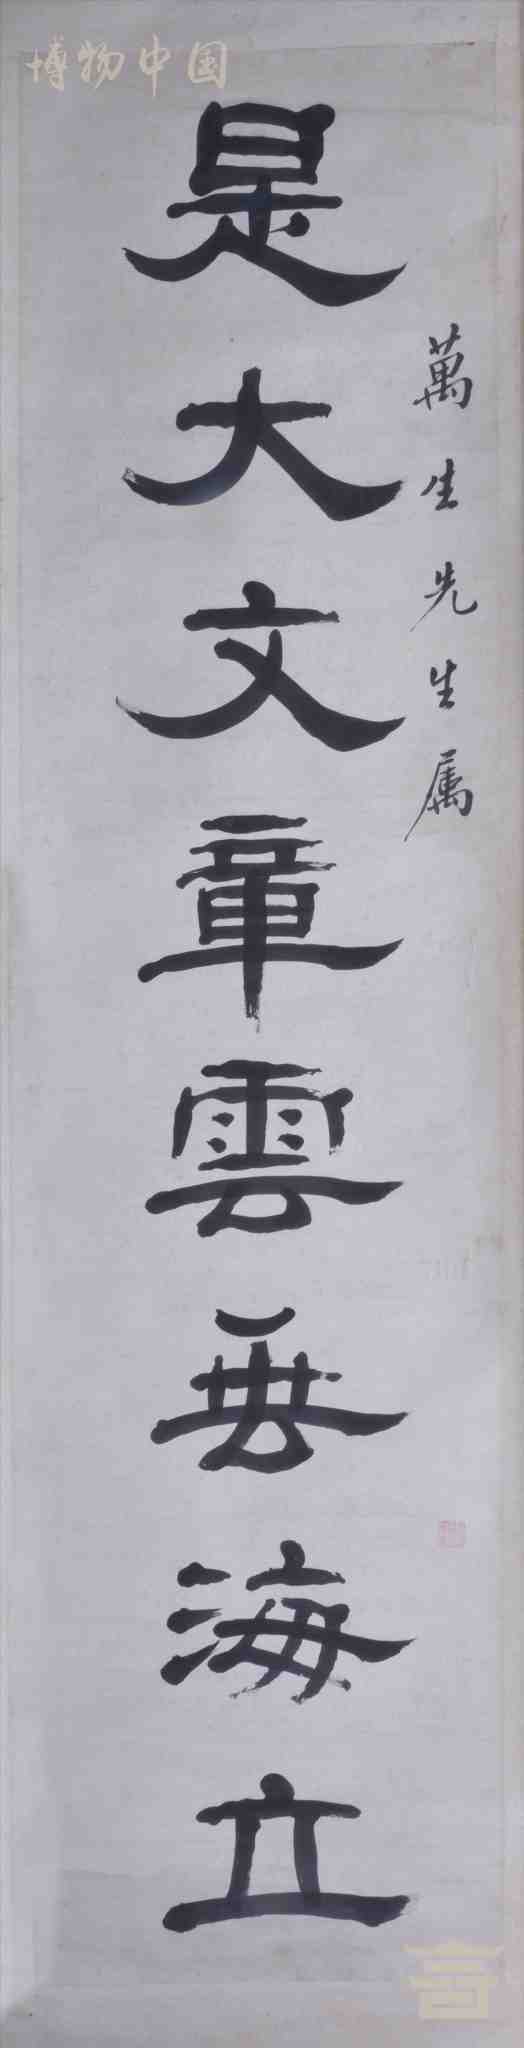 博物中国
萬生先生属
是大文章雲垂海立